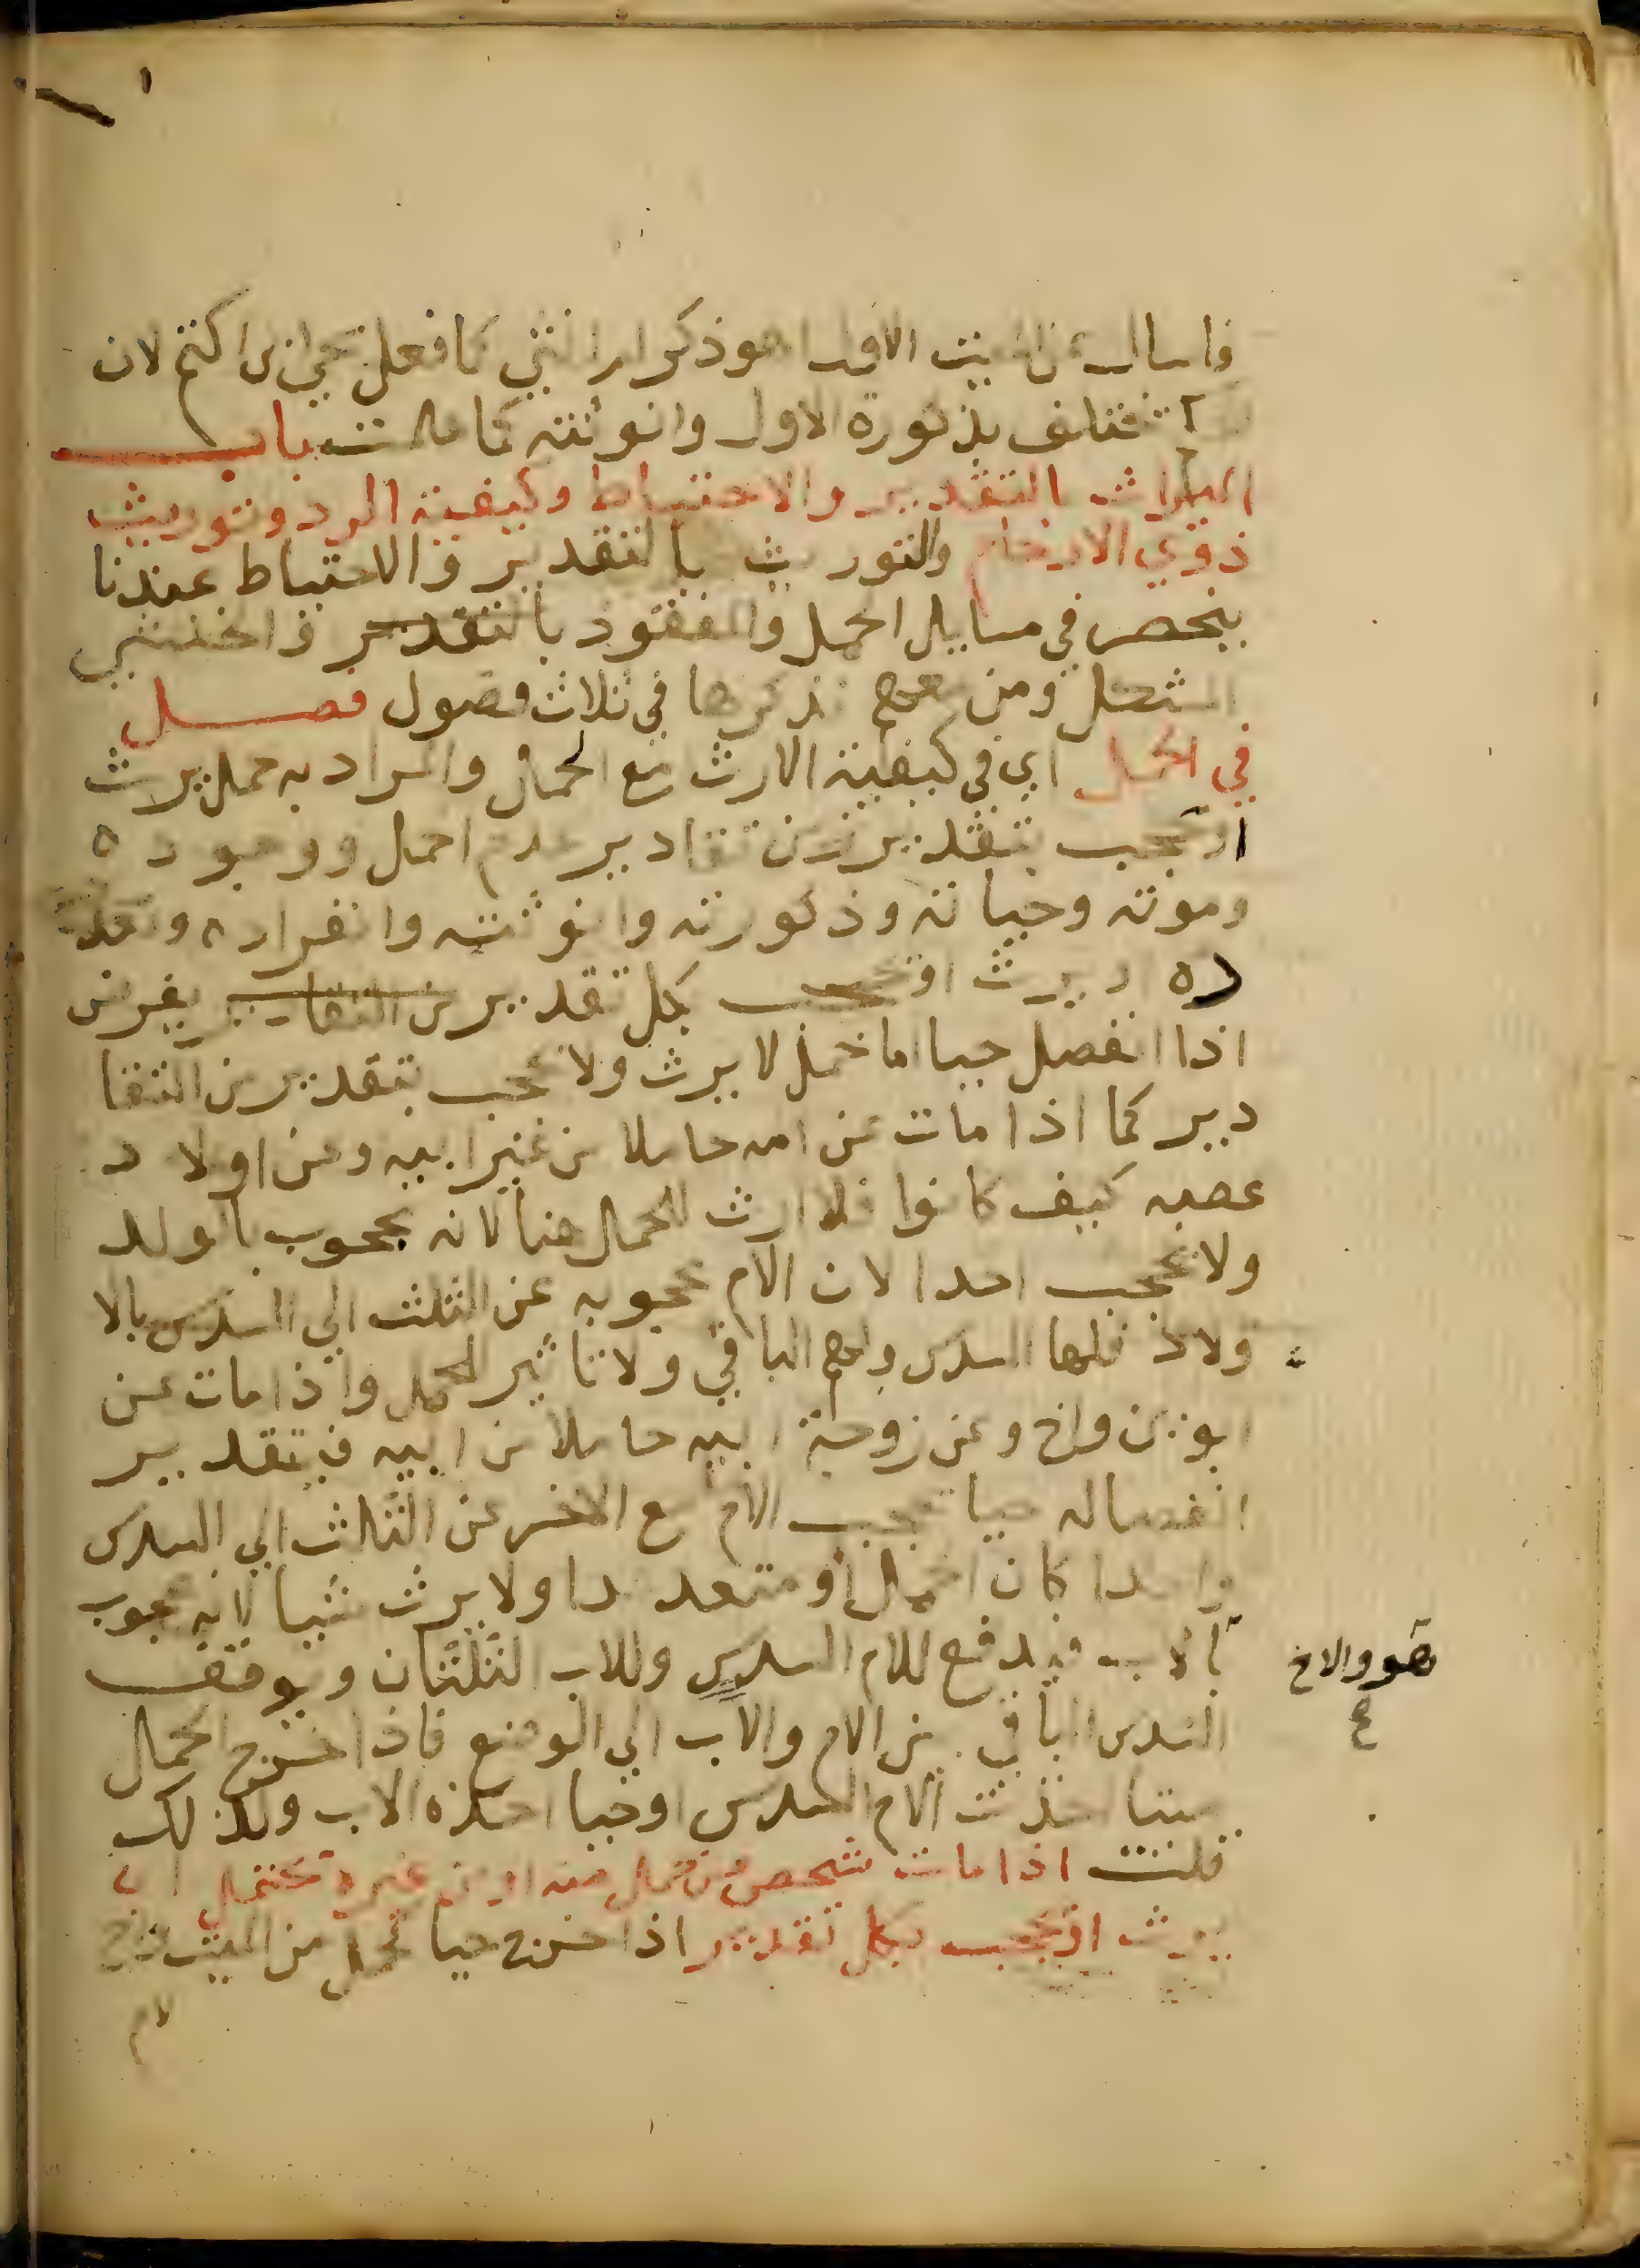 فاسال عن الميت الاول اهو ذكر ام انثي كما فعل يحيي بن اكثم لان
تختلف بذكورة الاول وانوثته كما علمت باب
الميراث بالتقدير والاحتياط وكيفية الرد وتوريث
ذوي الارحام والتوريث بالتقدير والاحتياط عندنا
ينحصر في مسايل الحمل والمفقود بالتقدير والخنثي
المشكل ومن نذكرها في ثلاث فصول فصل
في الحمل اي في كيفية الارث مع الحمل والمراد به حمل يرث
او يحجب بتقدير من تقادير عدم الحمل ووجوده
وموته وحياته وذكورته وانوثته وانفراده وتعد
ده او يرث او يحجب بكل تقدير من التقادير يفرض
اذا انفصل حيا اما حمل لا يرث ولا يحجب بتقدير من التقا
دير كما اذا مات عن امه حاملا من غير ابيه وعن اولاد
عصبه كيف كانوا فلا ارث للحمل هنا لانه محجوب بالولد
ولا يحجب احدا لان الام محجوبه عن الثلث الي السدس بالا
ولاد فلها السدس ولهم الباقي ولا تاثير للحمل واذا مات عن
ابوين واخ وعن زوجة ابيه حاملا من ابيه فبتقدير
انفصاله حيا يحجب الام مع الاخ عن الثلث الي السدس
واحدا كان الحمل او متعددا ولا يرث شيا لانه محجوب
هو والاخ
صح
بالاب فيدفع للام السدس وللاب الثلثان ويوقف
السدس الباقي بين الام والاب الي الوضع فاذا خرج الحمل
ميتا اخذت الام السدس او حيا اخذه الاب ولذلك
قلت اذا مات شخص عن حمل منه او من غيره محتمل ان
يرث او يحجب بكل تقدير اذا خرج حيا من الميت